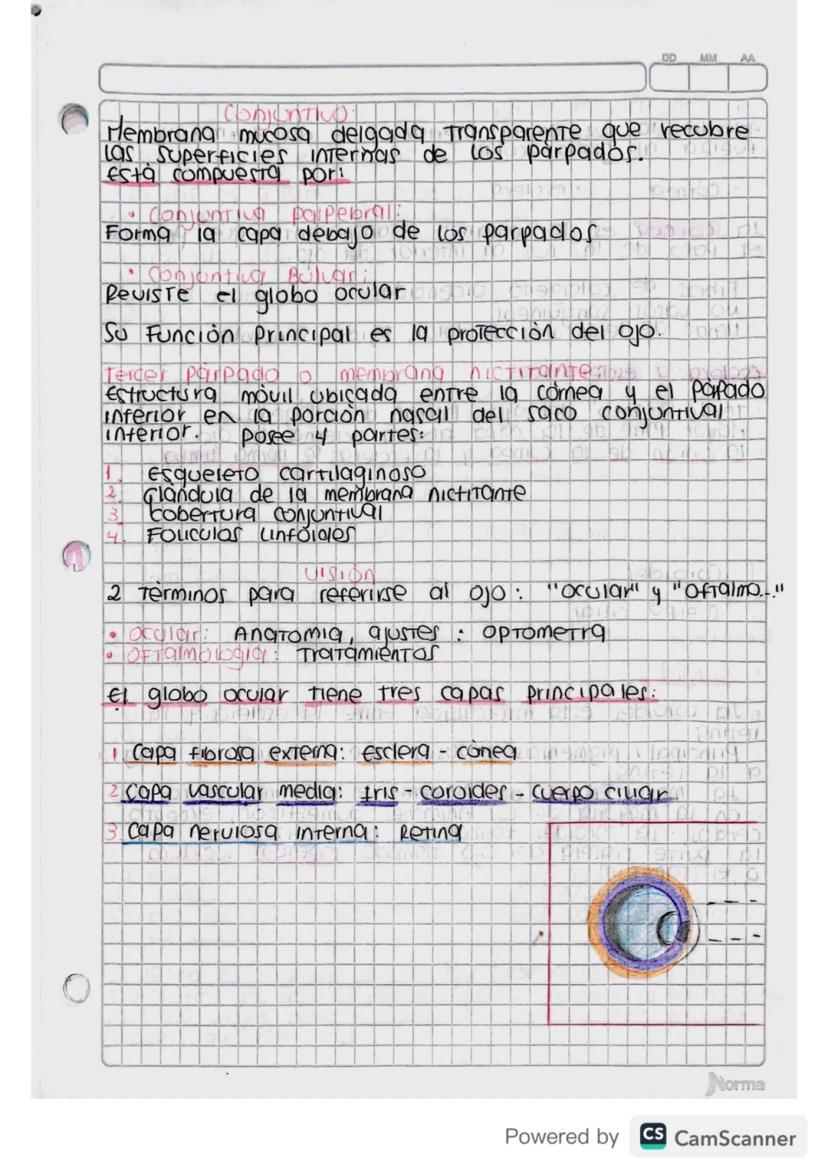 DD MM AA
Conjuntiva
Membrana mucosa delgada transparente que recubre
las superficies internas de los párpados.
Está compuesta por:
• Conjuntiva palpebral:
Forma la capa debajo de los parpados
• Conjuntiva Bulvar:
Reviste el globo ocular
Su Función Principal es la protección del ojo.
Tercer párpado o membrana nictitante:
Estructura móvil ubicada entre la córnea y el párpado
inferior en la porción nasal del saco conjuntival
inferior. Posee 4 partes:
1. Esqueleto cartilaginoso
2. Glándula de la membrana nictitante
3. Cobertura conjuntival
4. Folículos linfoides
Visión
2 términos para referirse al ojo: "ocular" y "oftalmo..."
• Ocular: Anatomia, ajustes : optometra
• Oftalmología: Tratamientos
El globo ocular tiene tres capas principales:
1 Capa fibrosa externa: esclera - cónea
2 Capa vascular media: Iris - coroides - cuerpo ciliar
3 Capa nerviosa interna: Retina
Norma
Powered by CS CamScanner